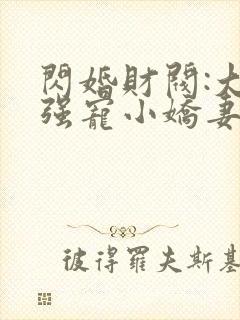 閃婚財閥:大
强寵小嬌妻
彼得羅夫斯基